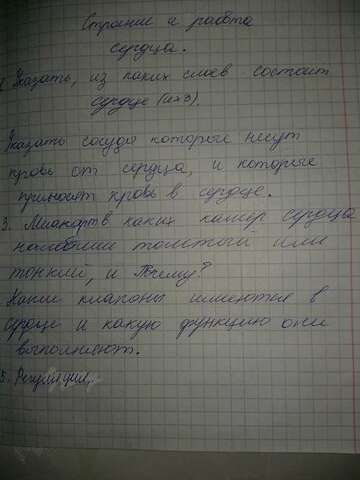 Строение и работа
сердца.
Указать, из каких слоев состоит
сердце (их 3).
Указать сосуды которые несут
кровь от сердца, и которые
приносят кровь в сердце.
3. Миокард в каких камер сердца
наиболее толстый или
тонкий, и Почему?
Какие клапоны имеются в
сердце и какую функцию они
выполняют.
5. Регуляция